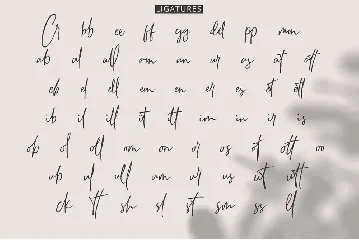 LIGATURES
Cr bb ee ff gg dd pp mm
ab al all am an ar as at att
eb el ell em en er es et ett
ib il ill it itt im in ir is
ob ol oll om on or os ot ott oo
ub ul ull um ur us ut utt
ck Yt sh st sm ss ll